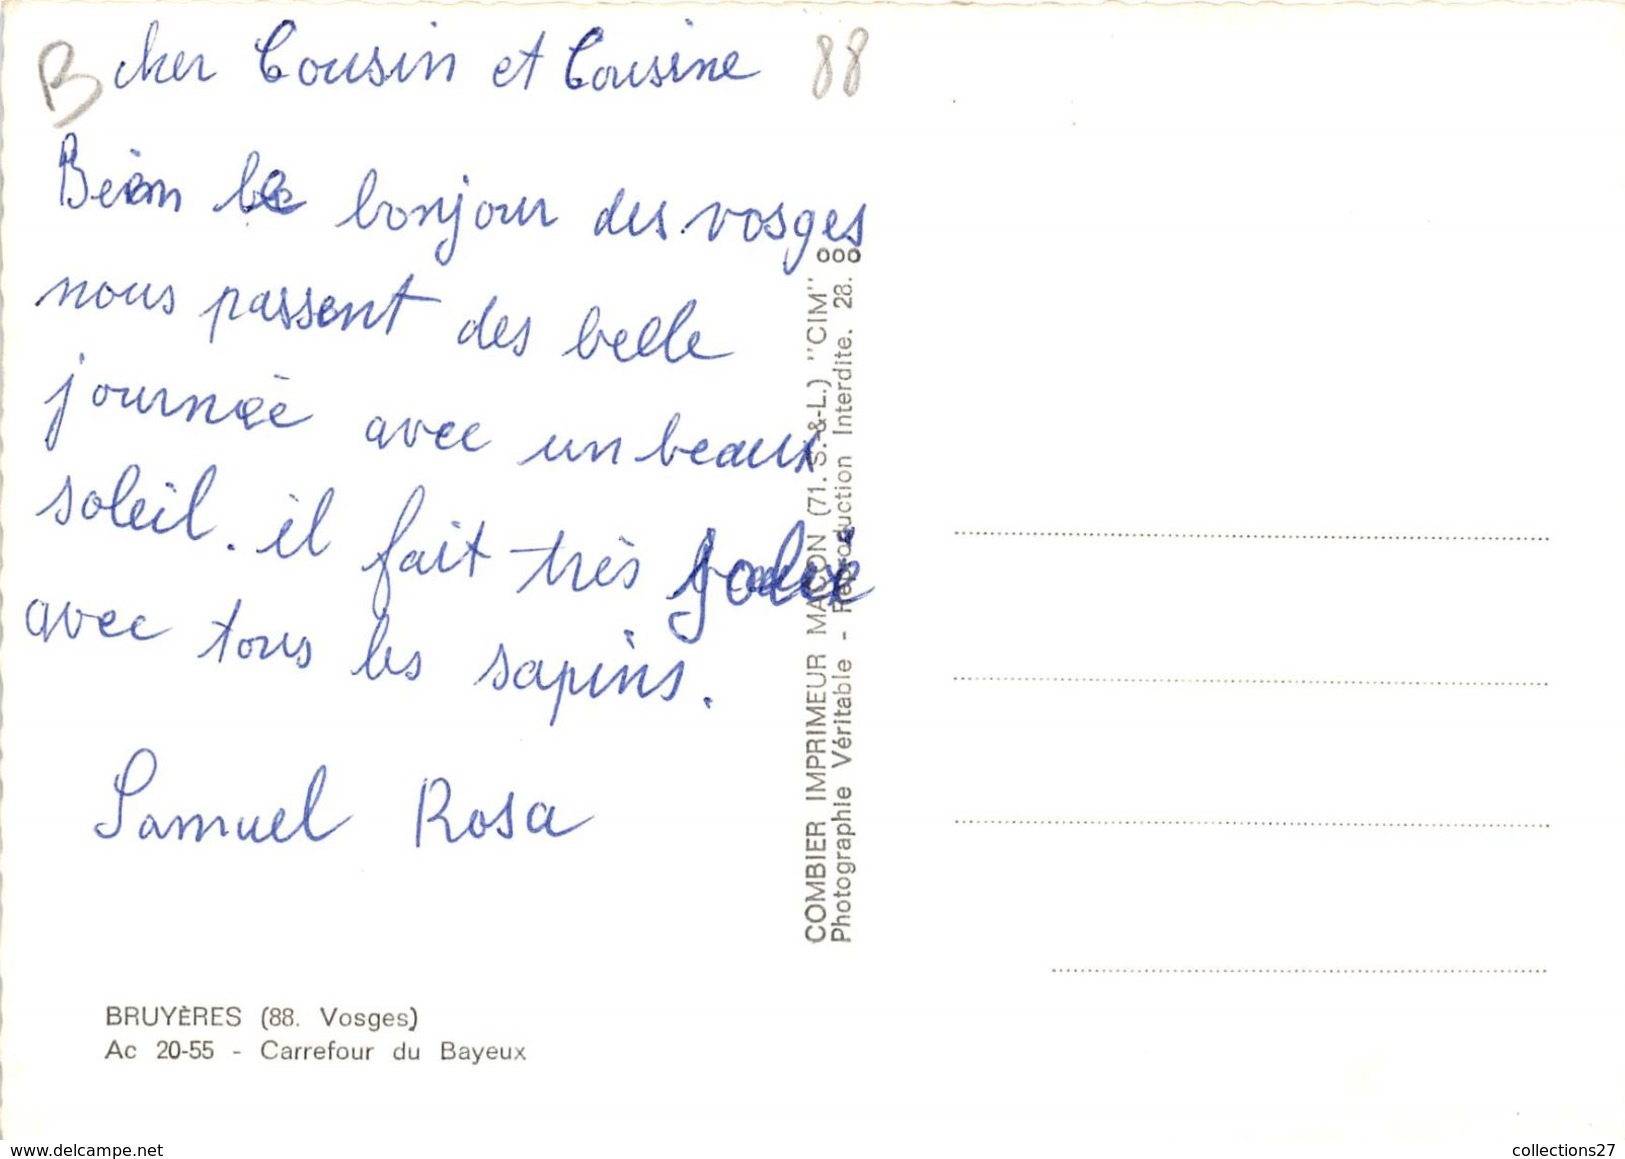 B cher Cousin et Cousine 88
Bien le bonjour des vosges
nous passent des belle
journée avec un beaux
soleil. il fait très joli
avec tous les sapins.
Samuel Rosa
COMBIER IMPRIMEUR MACON (71. S.-&-L.) "CIM"
Photographie Véritable - Reproduction Interdite. 28.
BRUYÈRES (88. Vosges)
Ac 20-55 - Carrefour du Bayeux
collections27